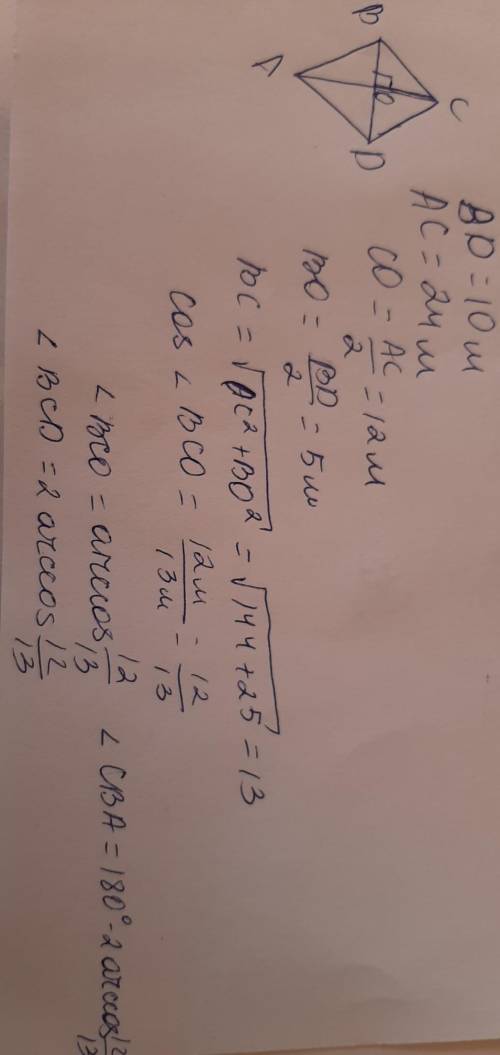 B
A
C
O
D
BD = 10 м
AC = 24 м
CO = AC/2 = 12 м
BO = BD/2 = 5 м
BC = √(OC² + BO²) = √(144 + 25) = 13
cos ∠ BCO = 12м/13м = 12/13
∠ BCO = arccos 12/13 ∠ CBA = 180° - 2 arccos 12/13
∠ BCD = 2 arccos 12/13